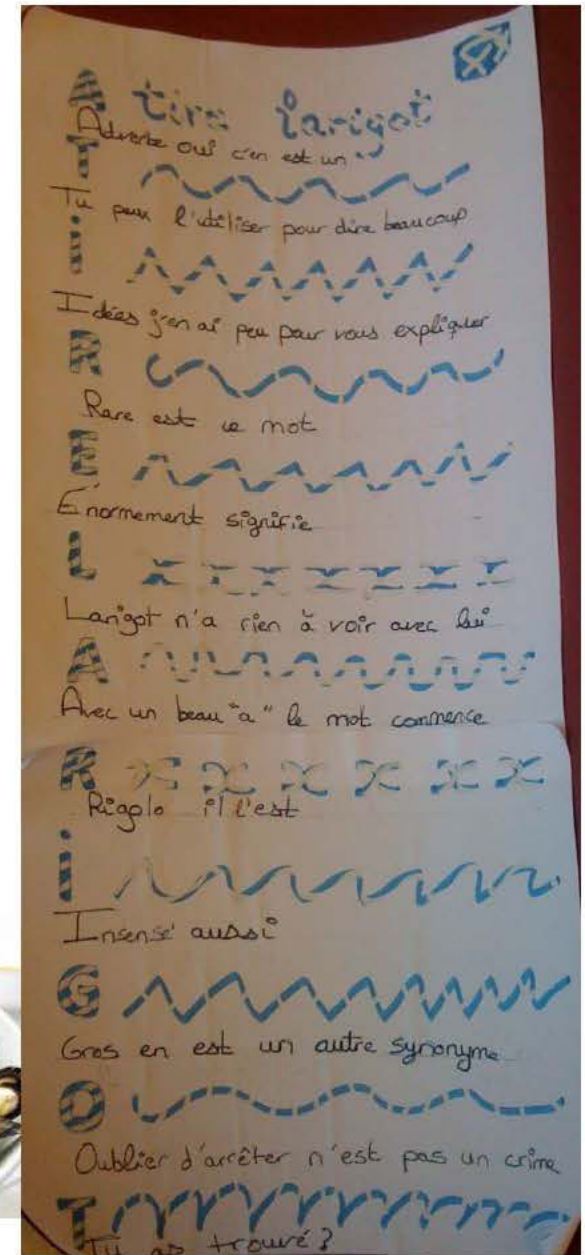 A tire larigot
Adverbe oui c'en est un
T
Tu peux l'utiliser pour dire beaucoup
i
Idées j'en ai peu pour vous expliquer
R
Rare est ce mot
E
Énormement signifie
L
Larigot n'a rien à voir avec lui
A
Avec un beau "a" le mot commence
R
Rigolo il l'est
i
Insensé aussi
G
Gros en est un autre synonyme
O
Oublier d'arrêter n'est pas un crime
T
Tu as trouvé?